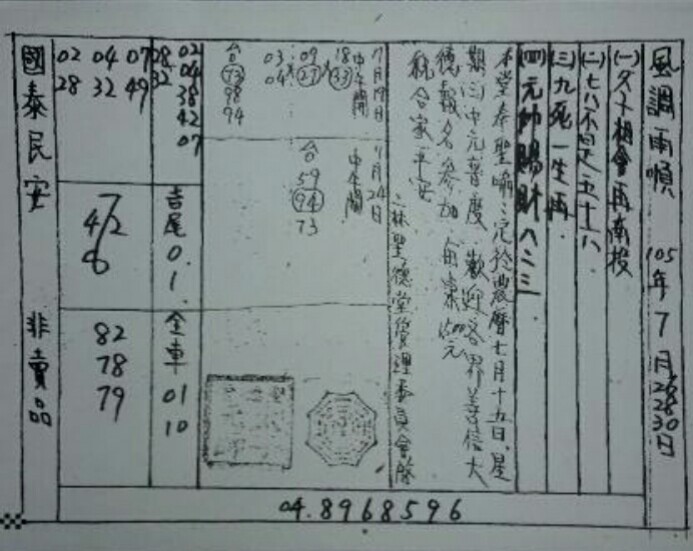 風調雨順 105年7月26 28 30日
(一)夕卜相會再南投
(二)七八不是五十六
(三)九死一生再
(四)元帥賜財八二三
本堂奉聖喻:定於農曆七月十五日,星
期三中元普度,歡迎各界善信大
德報名參加,每桌
祝合家平安
二林聖德堂管理委員會啓
7月19日
中午開
18 33
09 27
03 04
台
73
98
94
7月24日
中午開
台
59
94
73
02
04
08 38
32 42
07
吉尾0.1.
全車01
10
02 04 07
28 32 49
7
4/2
6
82
78
79
國泰民安 非賣品
04.8968596